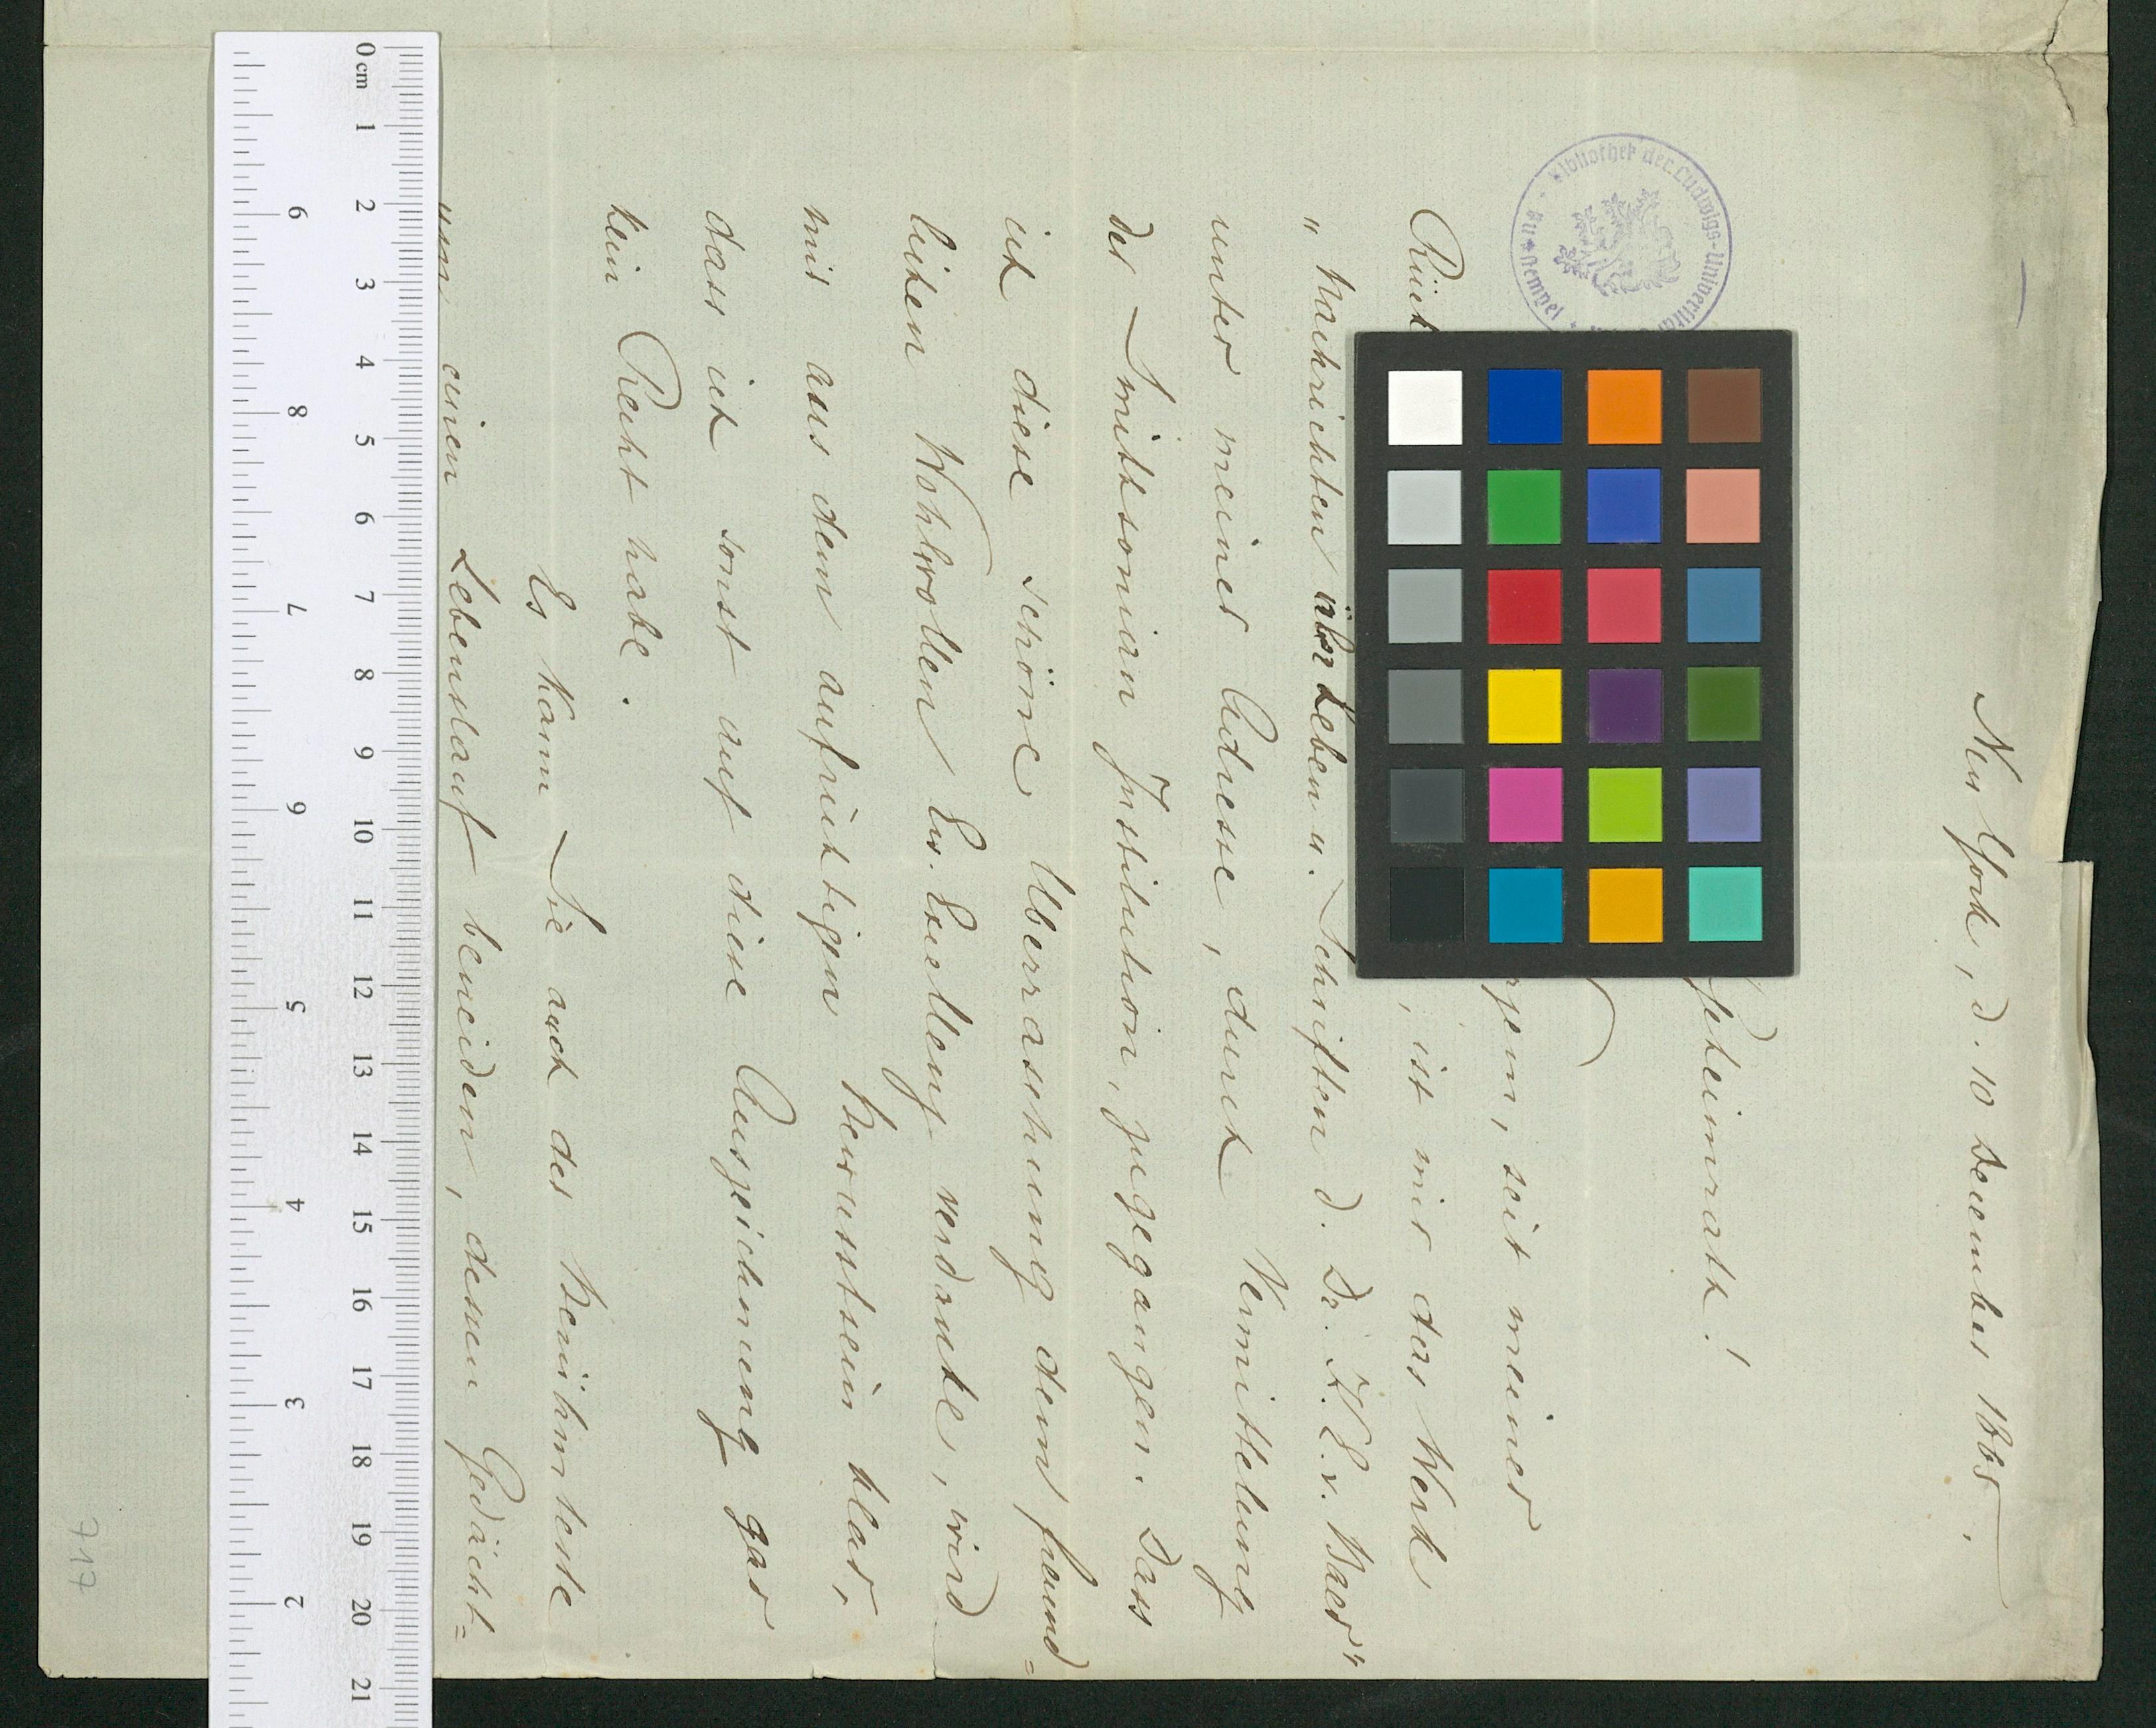 New York, d. 10 December 1865.
geheimrath!
rgem, seit meiner
Rück , ist mir das Werk
"Nachrichten über Leben u. Schriften d. Dr. K. E. v. Baer"
unter meiner Adresse, durch Vermittelung
der Smithsonian Institution, zugegangen. Dass
ich diese schöne Überraschung dem freund=
lichen Wohlwollen Ew. Excellenz verdanke, wird
mir aus dem aufrichtigen Bewusstsein klar,
dass ich sonst auf diese Auszeichnung gar
kein Recht habe.
Es kann Sie auch der Berühmteste
um einen Lebenslauf beneiden, dessen Gedächt=
Bibliothek der Ludwigs-Universität
717
0 cm 1 2 3 4 5 6 7 8 9 10 11 12 13 14 15 16 17 18 19 20 21
9 8 7 6 5 4 3 2